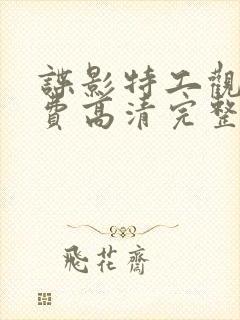 諜影特工觀
費高清完整
飛花齋